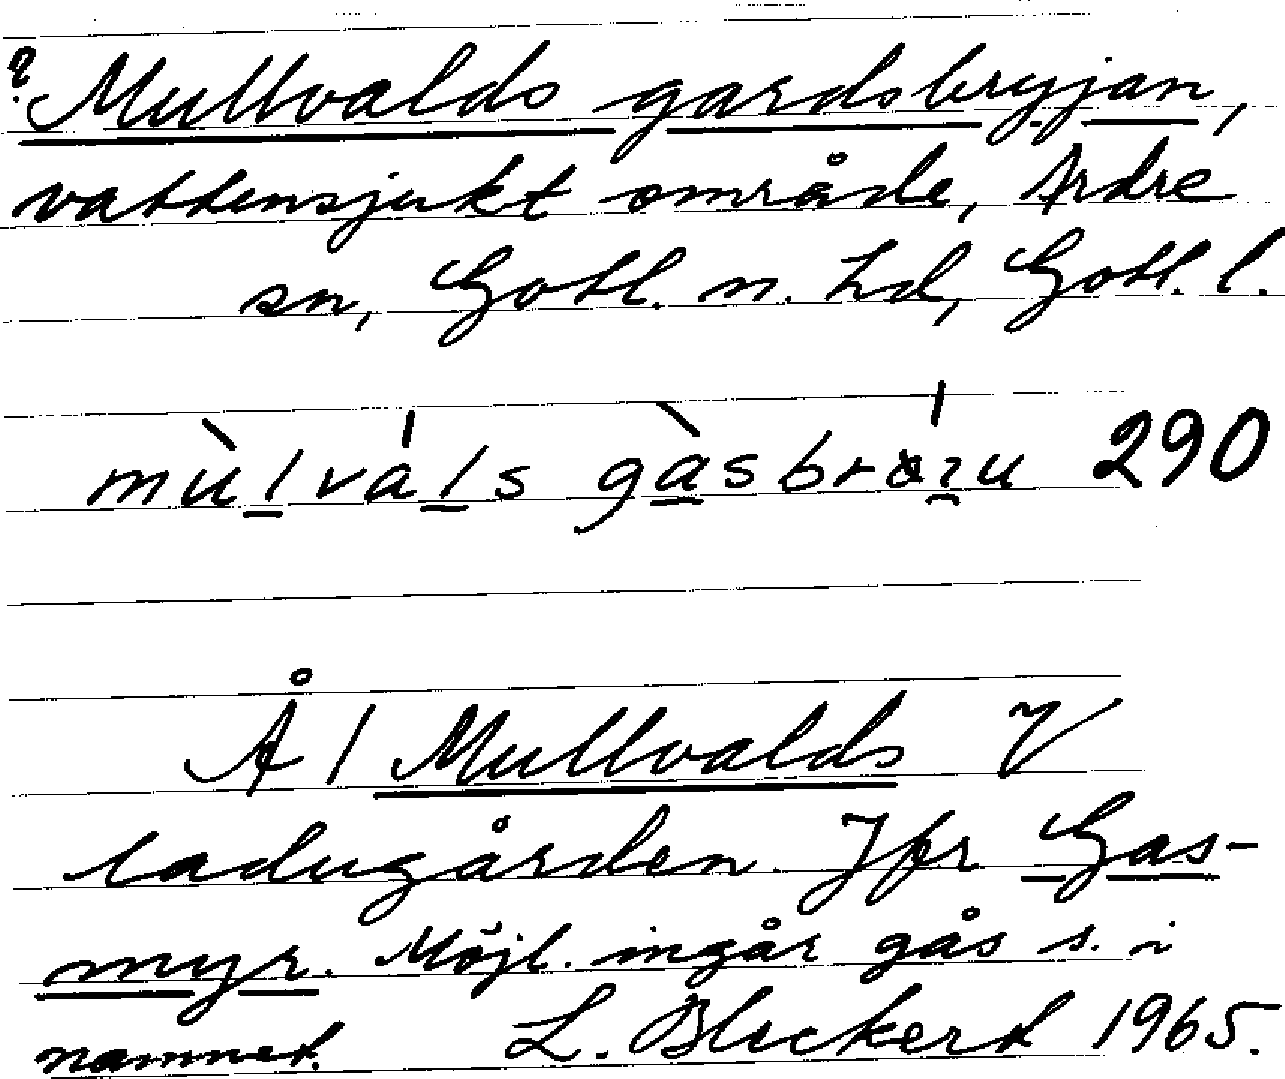 ? Mullvalds gardsbryjan,
vattensjukt område, Ardre
sn, Gotl. n. hd, Gotl. l.
mùlváls gàsbrɑ́ɪu 290
Å / Mullvalds V
ladugården. Jfr Gas-
myr. Möjl. ingår gås s. i
namnet. L. Bleckert 1965.